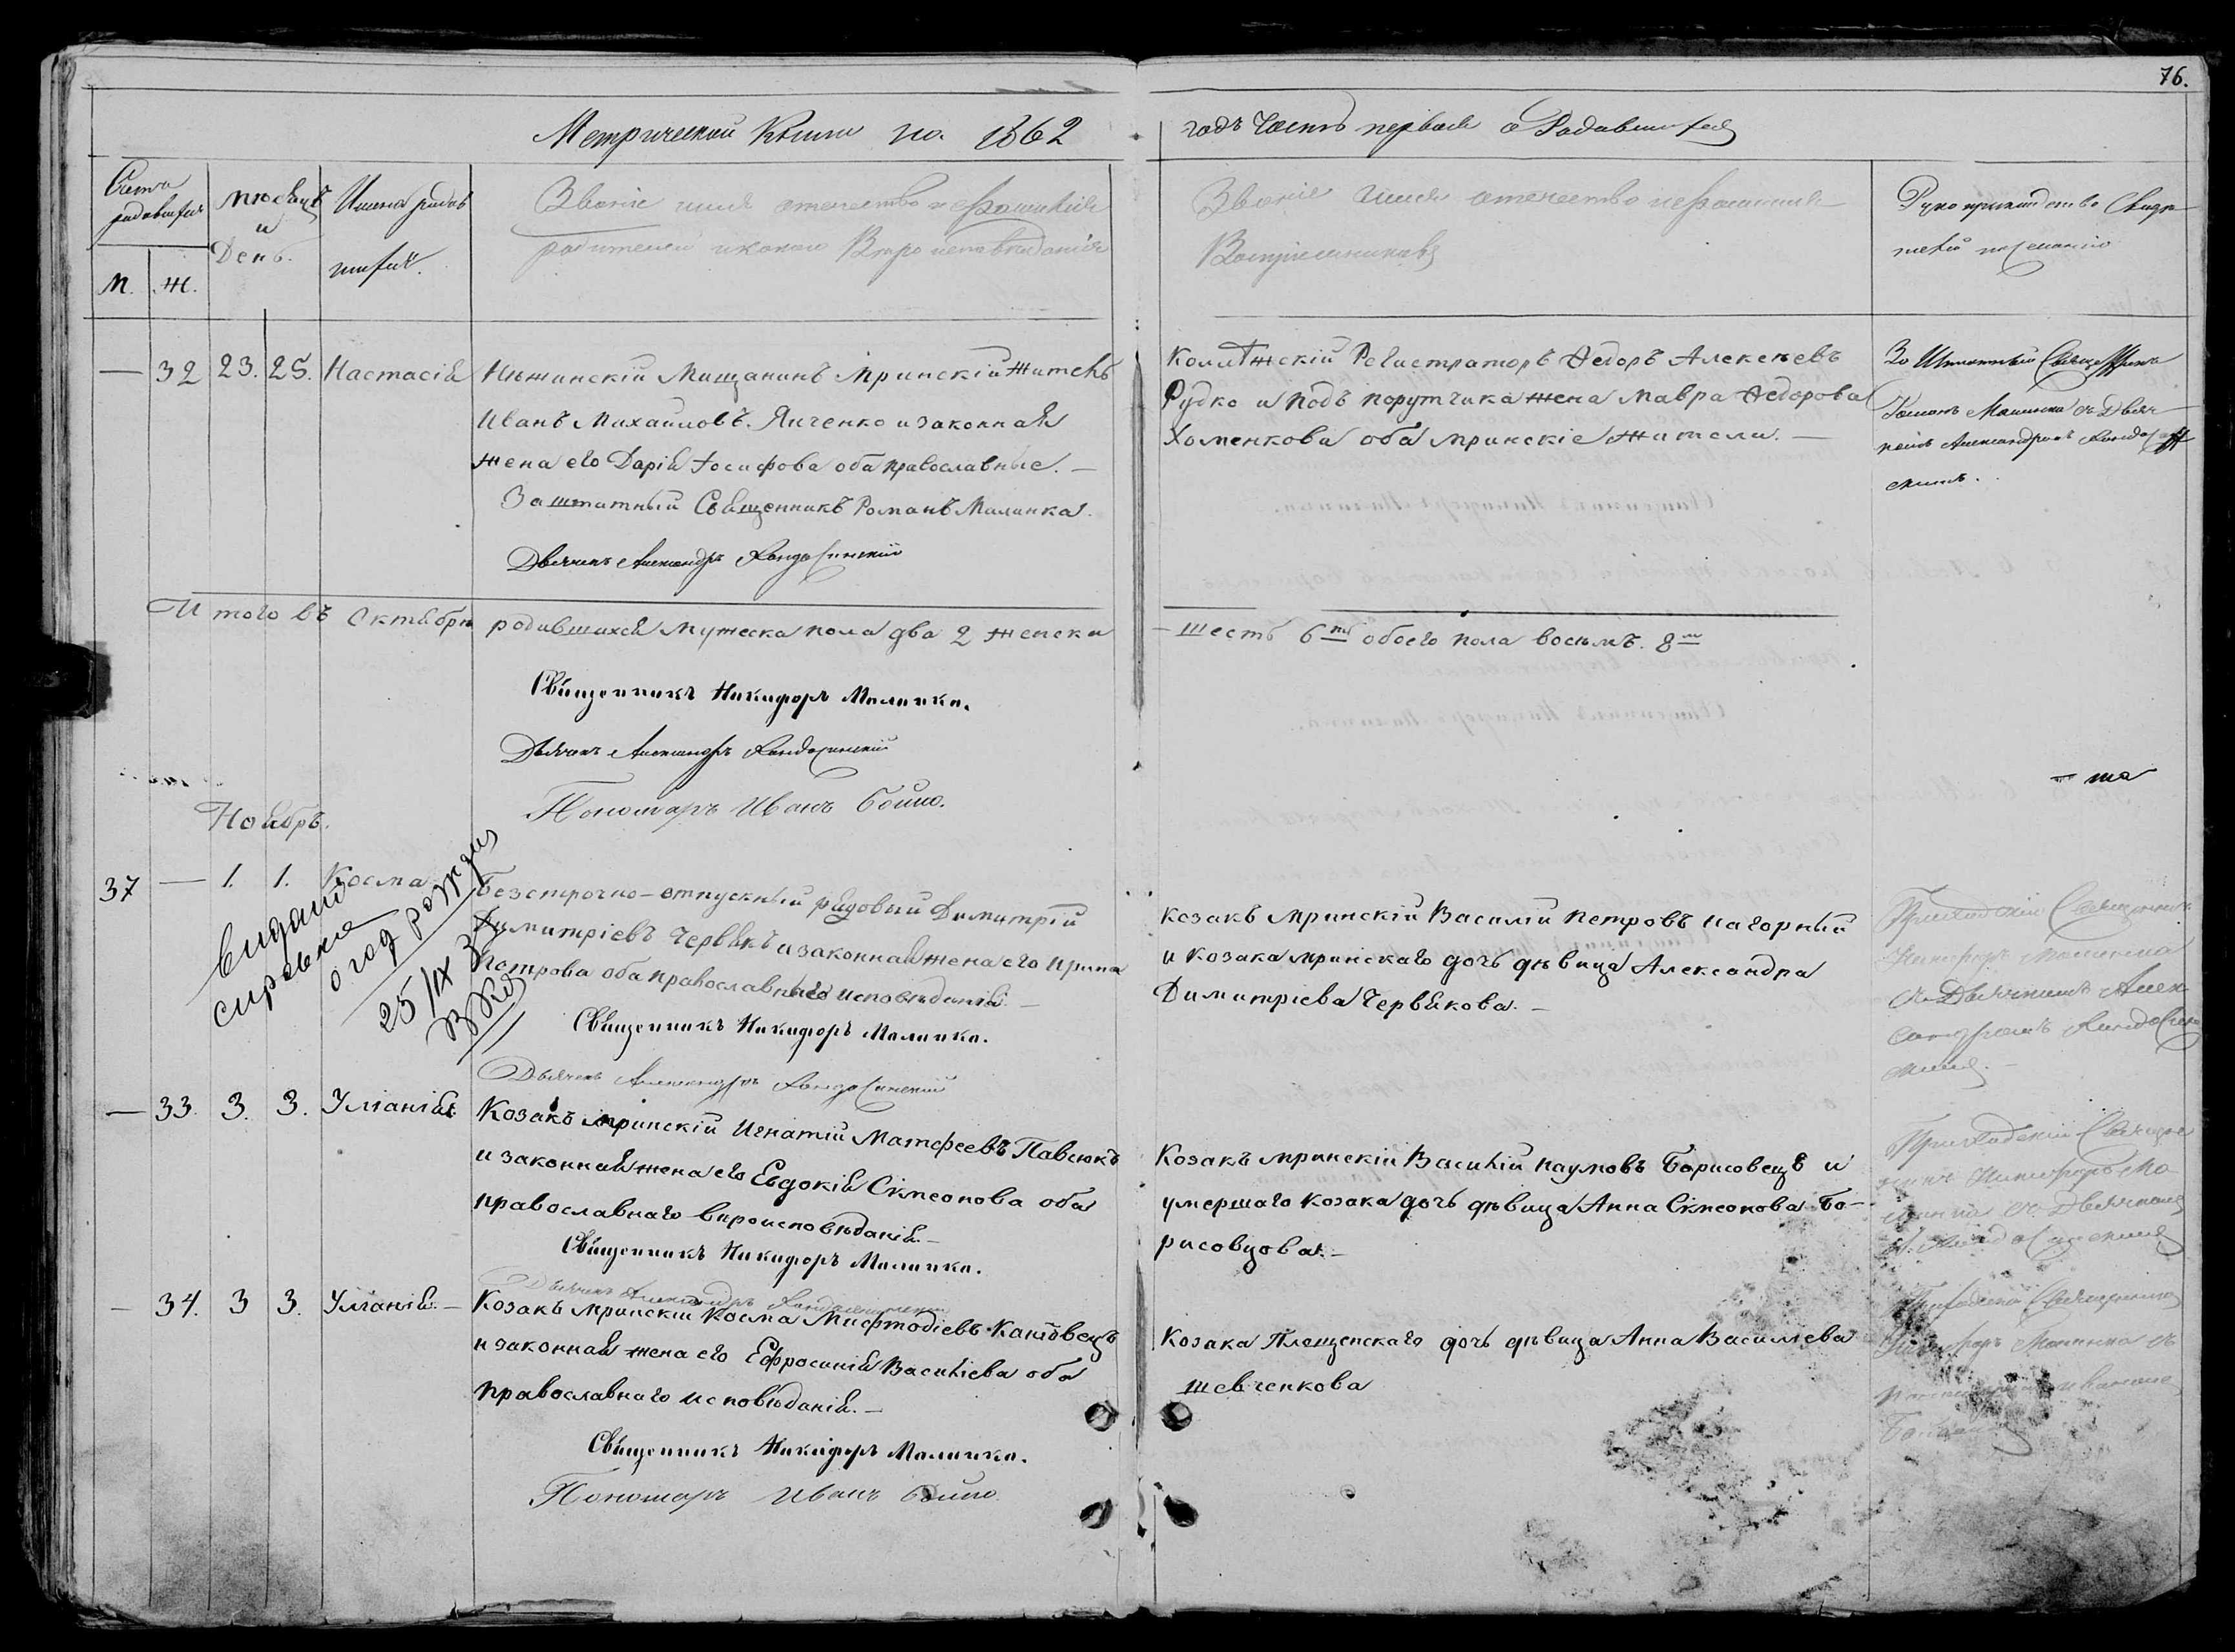 76.
Метрической Книги на 1862
годъ Часть первая о Родившихся
Счетъ родившихся
М. Ж.
Мѣсяцъ
и
День.
Имена родив
шихся.
Званіе имя отечество и фамилія
родителей и какого Вѣроисповѣданія
Званіе имя отечество и фамилія
Воспріемниковъ
Рукоприкладство Свидѣ
телей по желанію
— 32 23. 25. Настасія
Нѣжинскій Мищанинъ Мринскій Житель
Иванъ Михаиловъ Яиченко и законная
жена его Дарія Іосифова оба православные. —
Заштатный Священникъ Романъ Малинка.
Дьячекъ Александръ
Коллѣжскій Регистраторъ Ѳедоръ Алексѣевъ
Рудко и подъ порутчика жена Мавра Ѳедорова
Хоменкова оба мринскіе жители. —
Заштатный Священникъ
Романъ Малинка съ Дьяч
комъ Александромъ
Итого въ Октябрѣ родившихся мужеска пола два 2 женска
— шесть 6ть обоего пола восемъ. 8м
Священникъ Никифоръ Малинка.
Дьячекъ Александръ
Пономарь Иванъ Бойко.
та
Ноябрь.
37 — 1. 1. Косма
видано
справка
о год рожден
25/IX 3
Безстрочно-отпускный рядовый Димитрій
Димитріевъ Червякъ и законная жена его Ирина
Петрова оба православнаго исповѣданія. —
Священникъ Никифоръ Малинка.
Дьячекъ Александръ
козакъ мринскій Василій Петровъ Нагорный
и козака мринскаго дочь дѣвица Александра
Димитріева Червякова. —
Приходскій Священникъ
Никифоръ Малинка
съ Дьячкомъ Алек
сандромъ
— 33. 3. 3. Уліанія
Козакъ мринскій Игнатій Матфеевъ Павлюкъ
и законная жена его Евдокія Сімеонова оба
православнаго вѣроисповѣданія. —
Священникъ Никифоръ Малинка.
Дьячекъ Александръ
Козакъ мринскій Василій Наумовъ Борисовецъ и
умершаго козака дочь дѣвица Анна Сімеонова Бо-
рисовцова. —
Приходскій Священ
никъ Никифоръ Ма
линка съ Дьячкомъ
— 34. 3 3. Уліанія. —
Козакъ мринскій Косма Мефтодіевъ
и законная жена его Ефросинія Василіева оба
православнаго исповѣданія. —
Священникъ Никифоръ Малинка.
Пономарь Иванъ Бойко
Козака Плещенскаго дочь дѣвица Анна Василіева
шевченкова
Приходскій Священникъ
Никифоръ Малинка съ